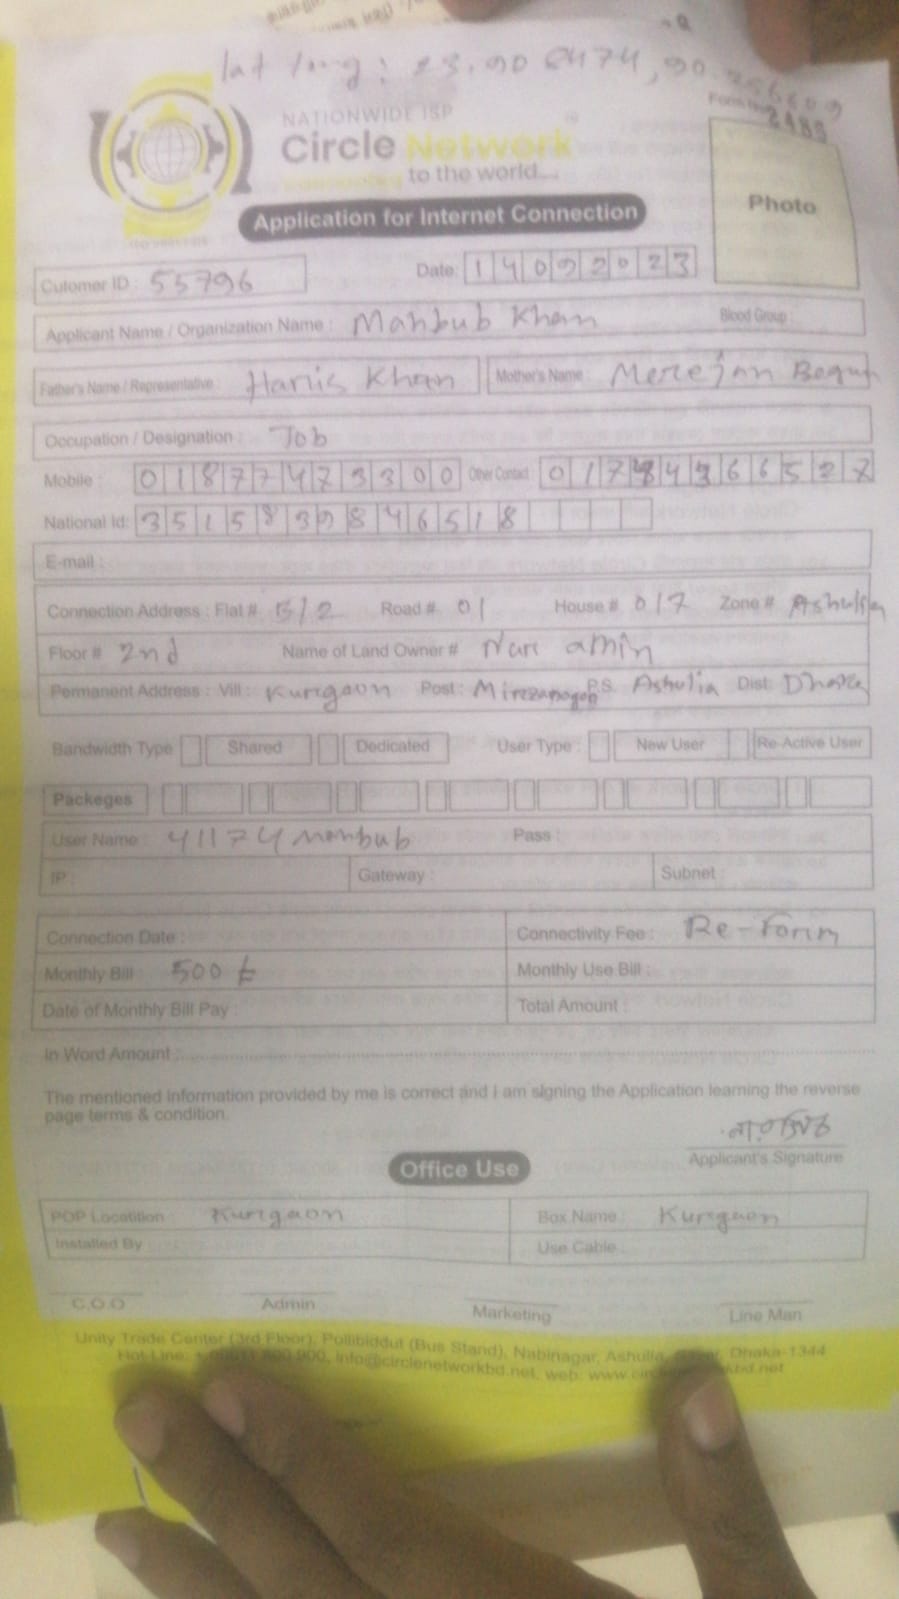 lat long: 23.908474, 90.256609
Form No. 2485
NATIONWIDE ISP
Circle Network
to the world...
Photo
Application for Internet Connection
Cutomer ID : 55796 Date: 14092023
Applicant Name / Organization Name : Mahbub Khan Blood Group :
Father's Name / Representative : Harris Khan Mother's Name : Merejan Begum
Occupation / Designation : Job
Mobile : 01877473300 Other Contact :
National Id:
E-mail :
Connection Address : Flat # B/2 Road # 01 House # 017 Zone # Ashulia
Floor # 2nd Name of Land Owner # Nure amin
Permanent Address : Vill : Kurgaon Post : Mirzanagor P.S. Ashulia Dist: Dhaka
Bandwidth Type Shared Dedicated User Type : New User Re-Active User
Packeges
User Name : 41174 Mahbub Pass :
IP : Gateway : Subnet :
Connection Date : Connectivity Fee : Re-Form
Monthly Bill : 500 Monthly Use Bill :
Date of Monthly Bill Pay : Total Amount :
In Word Amount :
The mentioned information provided by me is correct and I am signing the Application learning the reverse
page terms & condition.
Applicant's Signature
Office Use
POP Locatition : Kurgaon Box Name : Kurgaon
Installed By Use Cable :
C.O.O Admin Marketing Line Man
Unity Trade Center (3rd Floor), Pollibiddut (Bus Stand), Nabinagar, Ashulia, Dhaka-1344
Hot Line: 900, info@circlenetworkbd.net, web: